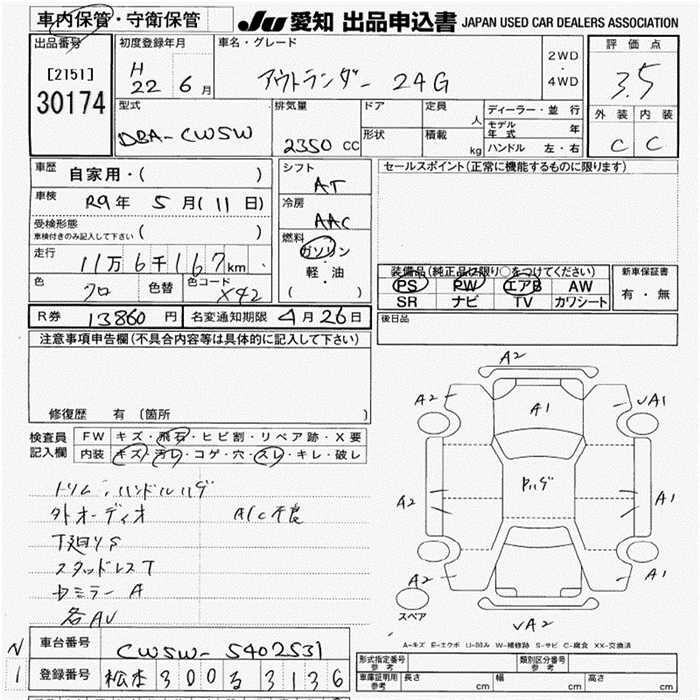 車内保管・守衛保管
JU 愛知 出品申込書 JAPAN USED CAR DEALERS ASSOCIATION
出品番号 初度登録年月 車名・グレード 2WD・4WD 評価点
[2151] H 22 6月 アウトランダー 24G 3.5
30174
型式 排気量 ドア 定員 人 ディーラー・並行 外装 内装
DBA-CW5W 2350cc 形状 積載 kg モデル年式 年 C C
ハンドル 左・右
車歴 自家用・( ) シフト AT セールスポイント(正常に機能するものに限ります)
車検 R9年 5月(11日) 冷房 AAC
受検形態 車検付きのみ記入して下さい ( ) 燃料 ガソリン・軽・油 ( )
走行 11万6千167km
装備品(純正品に限り○をつけてください) 新車保証書
色 クロ 色替 色コード X42 PS PW エアB AW 有・無
SR ナビ TV カワシート
R券 13860円 名変通知期限 4月26日 後日品
注意事項申告欄(不具合内容等は具体的に記入して下さい)
修復歴 有 〔箇所 〕
検査員記入欄 FW キズ・飛石・ヒビ割・リペア跡・X要
内装 キズ・汚レ・コゲ・穴・スレ・キレ・破レ
トリム、ハンドルハゲ
外オーディオ A/C不良
T廻りS
スタッドレスT
セミラーA
各AU
A2
A2 A1 √A1
A2 PハゲA1
A2 A1
スペア √A2
A-キズ E-エクボ U-凹み W-補修跡 S-サビ C-腐食 XX-交換済
N 1
車台番号 CW5W-5402531
登録番号 松本 300 る 3136
形式指定番号 参考 類別区分番号 参考
車庫証明用 参考 長さ cm 幅 cm 高さ cm